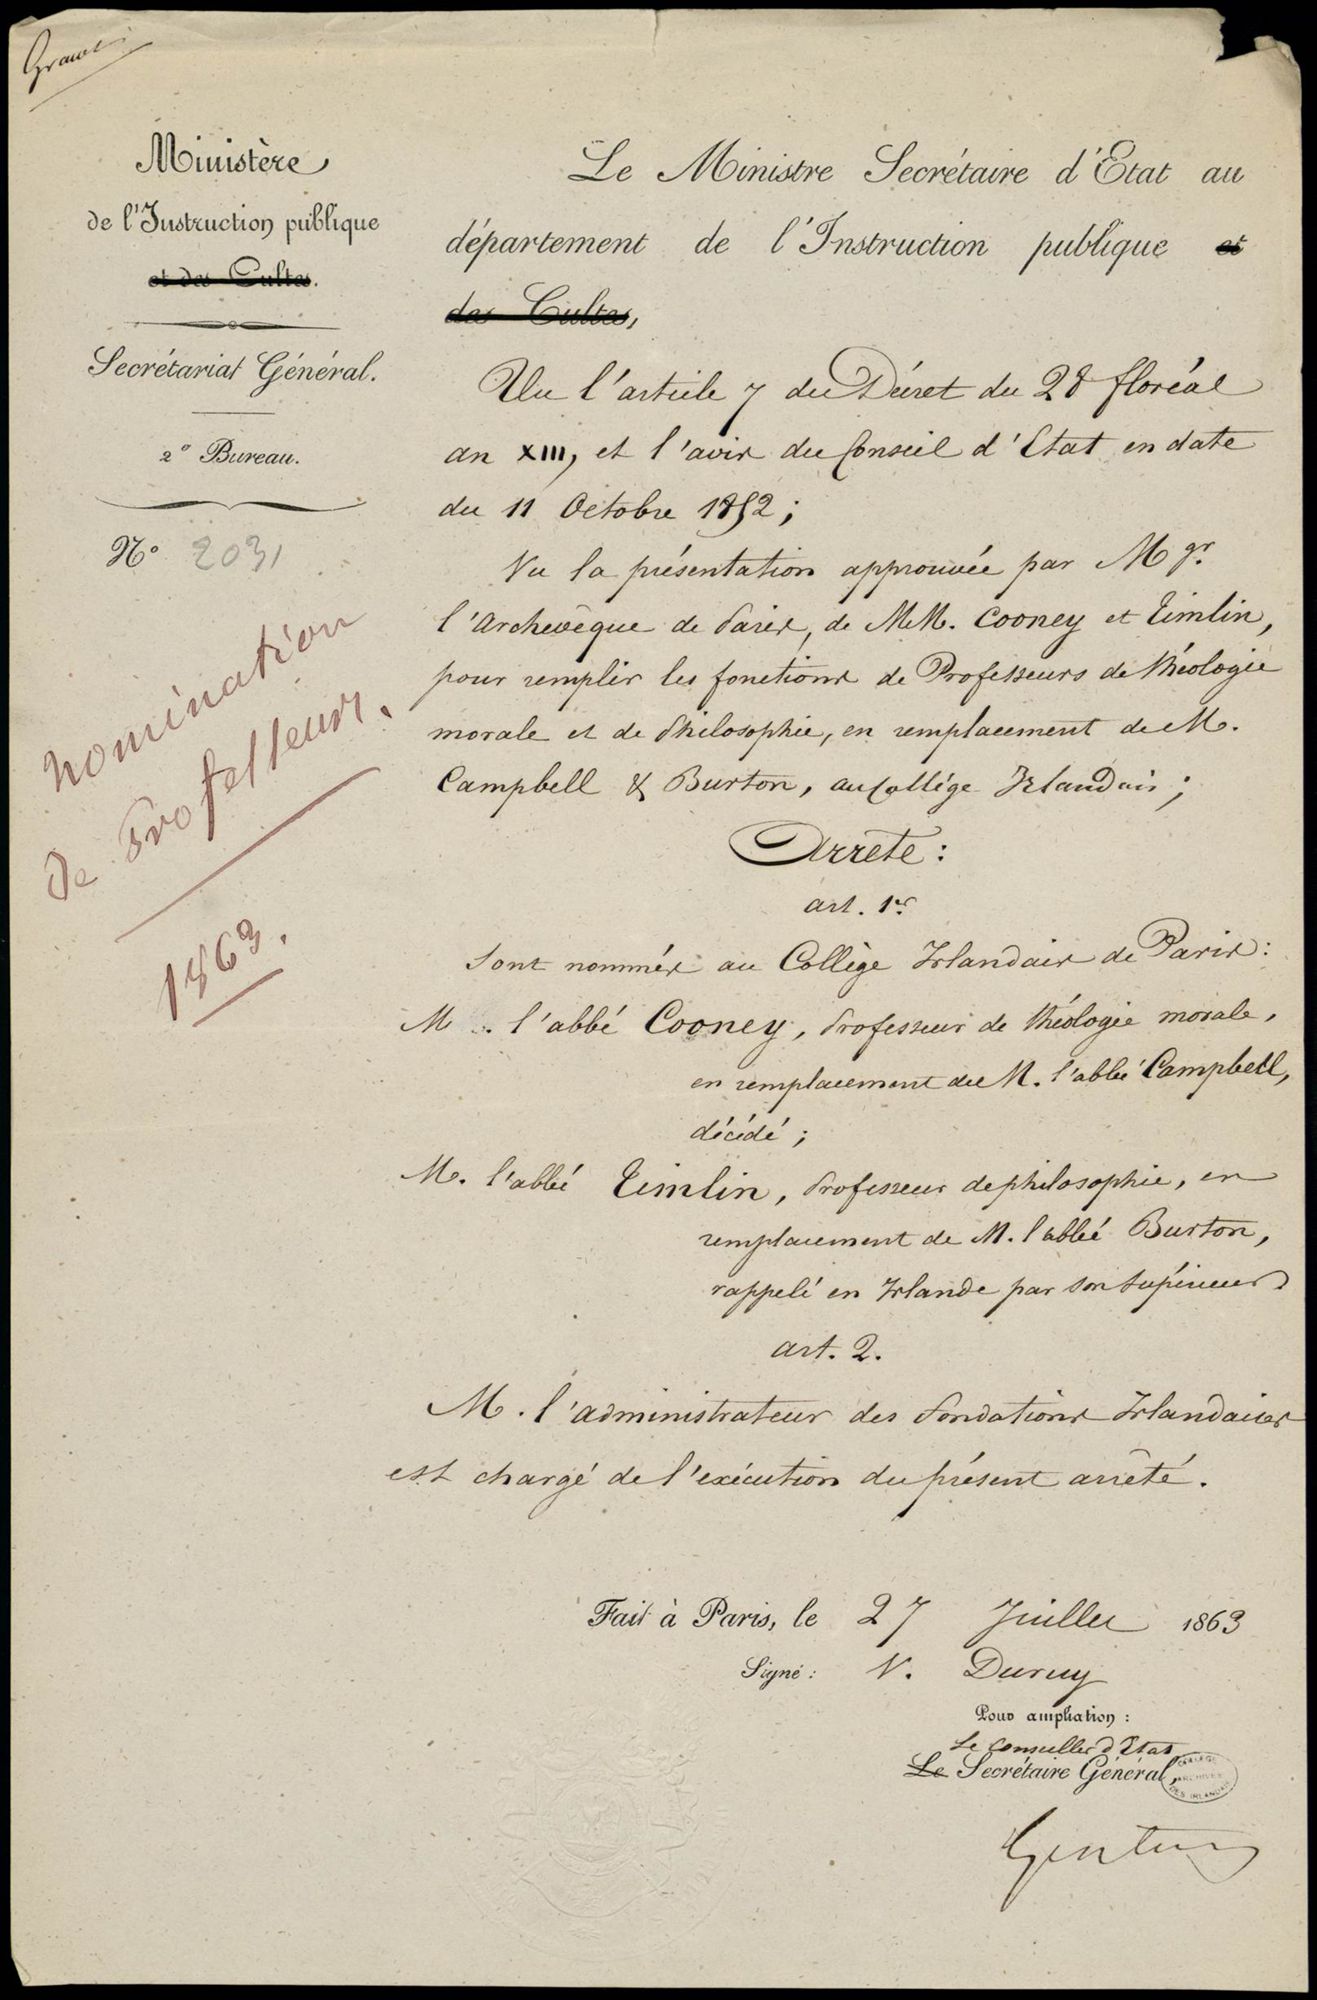 Ministère
de l'Instruction publique
et des Cultes.
Secrétariat Général.
2e Bureau.
No 2031
nomination
de Professeurs.
1863.
Le Ministre Secrétaire d'Etat au
département de l'Instruction publique et
des Cultes,
Vu l'article 7 du Décret du 28 floréal
an XIII, et l'avis du Conseil d'Etat en date
du 11 Octobre 1852;
Vu la présentation approuvée par Mgr.
l'Archevêque de Paris, de MM. Cooney et Timlin,
pour remplir les fonctions de Professeurs de théologie
morale et de Philosophie, en remplacement de M.
Campbell & Burton, au Collége Irlandais;
Arrête:
art. 1er
Sont nommés au Collège Irlandais de Paris:
M. l'abbé Cooney, Professeur de théologie morale,
en remplacement du M. l'abbé Campbell,
décédé;
M. l'abbé Timlin, Professeur de philosophie, en
remplacement de M. l'abbé Burton,
rappelé en Irlande par son Supérieur
art. 2.
M. l'administrateur des fondations Irlandaises
est chargé de l'exécution du présent arrêté.
Fait à Paris, le 27 Juillet 1863
Signé: V. Duruy
Pour ampliation:
Le Conseiller d'Etat
Le Secrétaire Général,
COLLEGE
ARCHIVES
DES IRLANDAIS